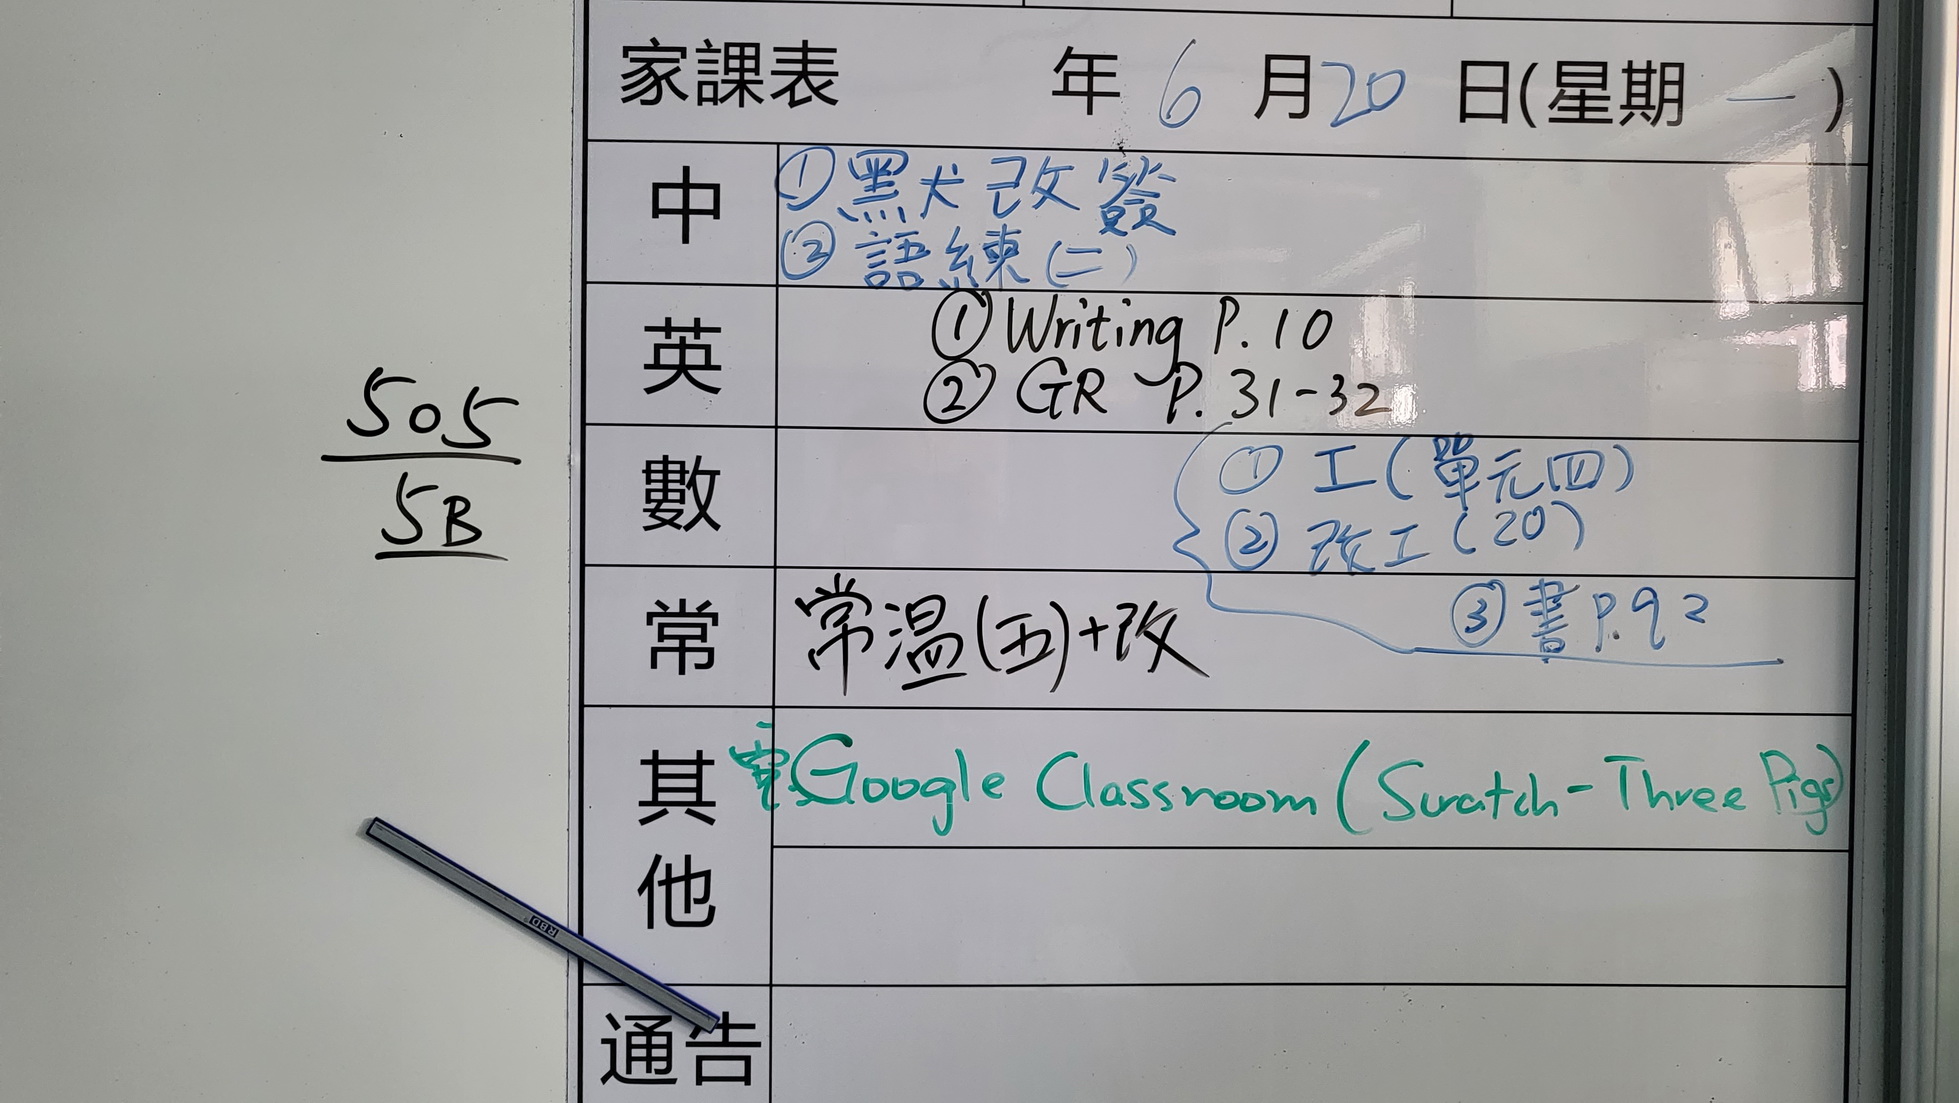 家課表 年 6 月 20 日(星期 一 )
中
① 黑犬改簽
② 語練(二)
英
① Writing P.10
② GR P.31-32
505
5B
數
① 工(單元四)
② 改工(20)
③ 書 P.92
常
常溫(五)+改
其他
電 Google Classroom (Scratch-Three Pigs)
RBD
通告